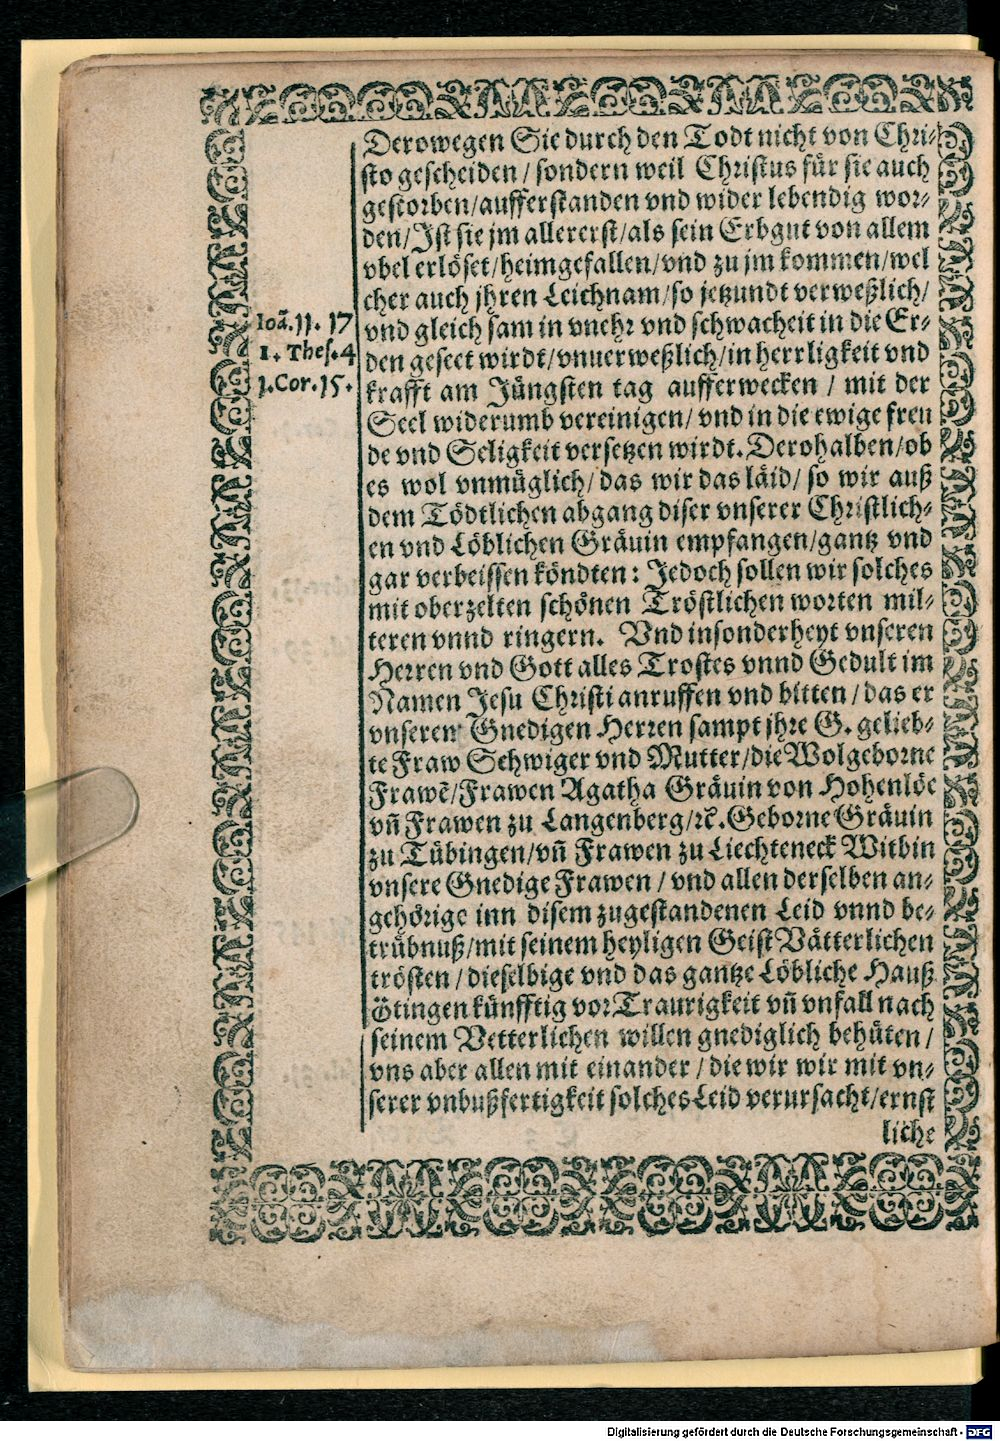 Derowegen Sie durch den Todt nicht von Chri-
sto gescheiden / sondern weil Christus für sie auch
gestorben/aufferstanden vnd wider lebendig wor-
den/Ist sie jm allererst/als sein Erbgut von allem
vbel erlöset/heimgefallen/vnd zu jm kommen/wel
cher auch jhren Leichnam/so jetzundt verweßlich/
Ioã.11. 17
vnd gleich sam in vnehr vnd schwacheit in die Er-
1. Thes.4
den geseet wirdt/vnuerweßlich/in herrligkeit vnd
1.Cor.15.
krafft am Jüngsten tag aufferwecken / mit der
Seel widerumb vereinigen/ vnd in die ewige freu
de vnd Seligkeit versetzen wirdt. Derohalben/ob
es wol vnmüglich/das wir das läid/ so wir auß
dem Tödtlichen abgang diser vnserer Christlich-
en vnd Löblichen Gräuin empfangen/gantz vnd
gar verbeissen köndten: Jedoch sollen wir solches
mit oberzelten schönen Tröstlichen worten mil-
teren vnnd ringern. Vnd insonderheyt vnseren
Herren vnd Gott alles Trostes vnnd Gedult im
Namen Jesu Christi anruffen vnd bitten / das er
vnseren Gnedigen Herren sampt jhre G. gelieb-
te Fraw Schwiger vnd Mutter/die Wolgeborne
Frawẽ/Frawen Agatha Gräuin von Hohenlöe
vñ Frawen zu Langenberg/ꝛc̃. Geborne Gräuin
zu Tübingen/vñ Frawen zu Liechteneck Witbin
vnsere Gnedige Frawen / vnd allen derselben an-
gehörige inn disem zugestandenen Leid vnnd be-
trübnuß/mit seinem heyligen Geist Vätterlichen
trösten / dieselbige vnd das gantze Löbliche Hauß
Ötingen künfftig vor Traurigkeit vñ vnfall nach
seinem Vetterlichen willen gnediglich behüten /
vns aber allen mit einander / die wir wir mit vn-
serer vnbußfertigkeit solches Leid verursacht/ernst
liche
Digitalisierung gefördert durch die Deutsche Forschungsgemeinschaft - DFG